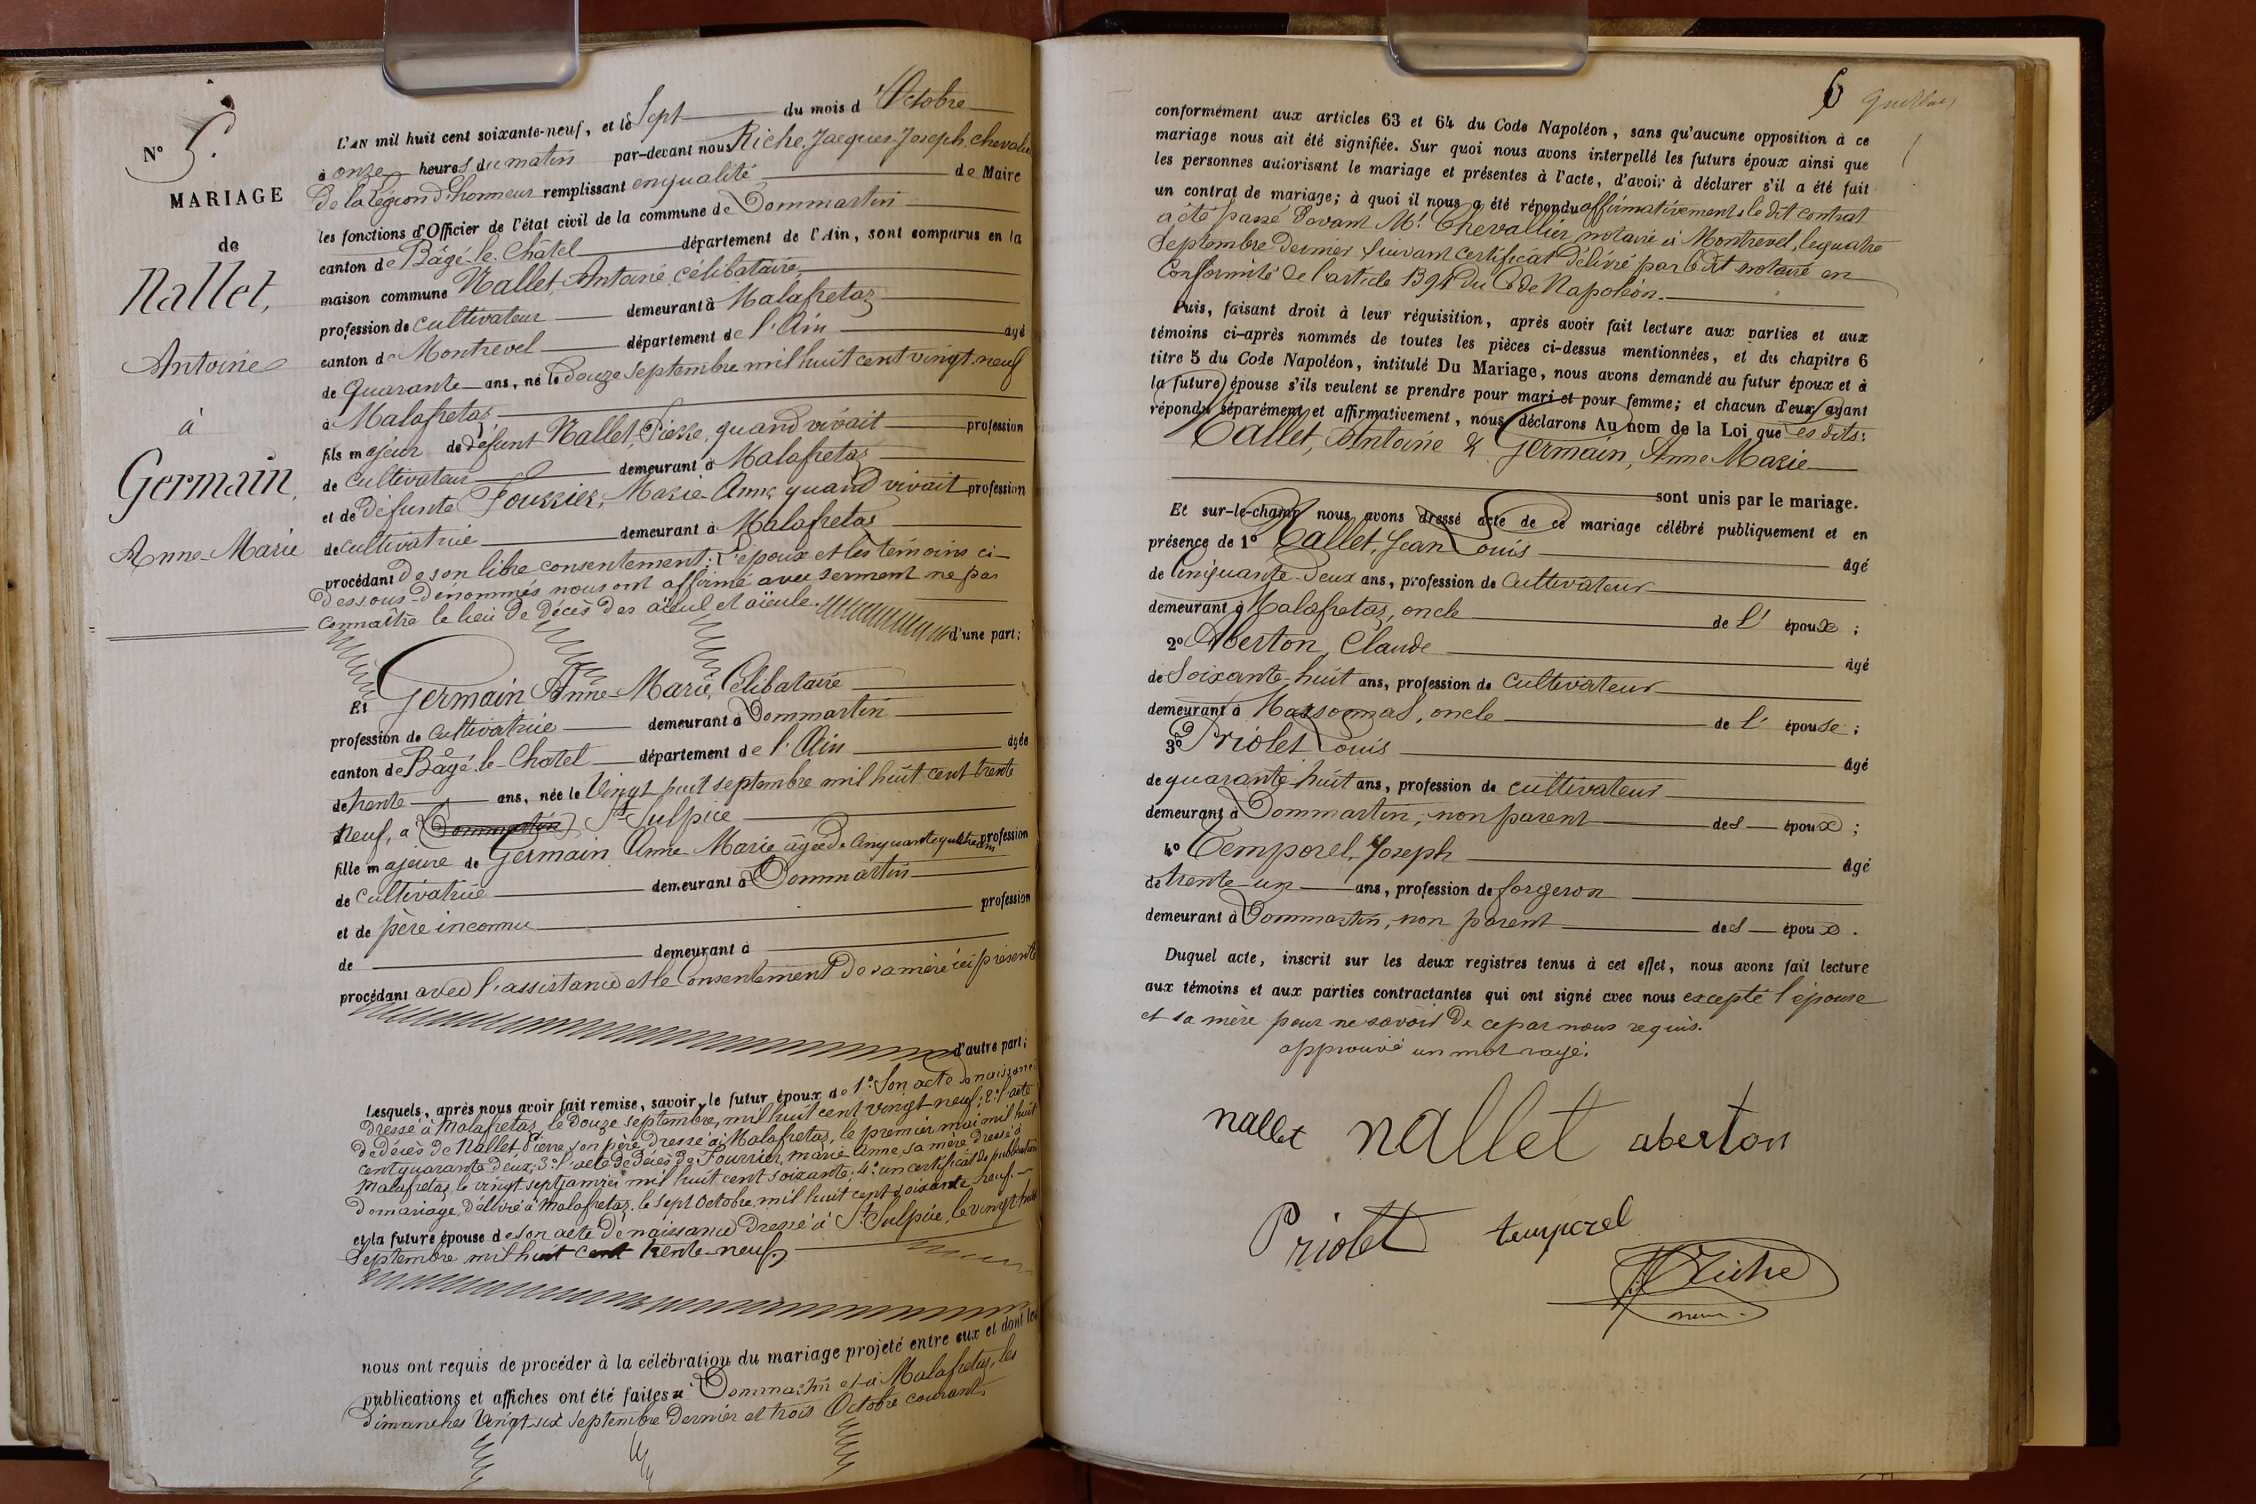 N° 5.
MARIAGE
de
Nallet,
Antoine
à
Germain,
Anne-Marie
L'AN mil huit cent soixante-neuf, et le Sept du mois d'Octobre
à onze heures du matin par-devant nous Riche, Jacques Joseph, chevalier
de la légion d'honneur remplissant en qualité de Maire
les fonctions d'Officier de l'état civil de la commune de Dommartin
canton de Bâgé-le-Châtel département de l'Ain, sont comparus en la
maison commune Nallet, Antoine, célibataire,
profession de cultivateur demeurant à Malafretaz
canton de Montrevel département de l'Ain âgé
de quarante ans, né le douze septembre mil huit cent vingt-neuf
à Malafretaz
fils majeur de défunt Nallet, Pierre, quand vivait profession
de cultivateur demeurant à Malafretaz
et de défunte Fourrier, Marie-Anne, quand vivait profession
de cultivatrice demeurant à Malafretaz
procédant de son libre consentement; l'époux et les témoins ci-
dessous-dénommés nous ont affirmé avec serment ne pas
connaître le lieu de décès des aïeul et aïeule. d'une part;
Et Germain Anne-Marie, Célibataire
profession de cultivatrice demeurant à Dommartin
canton de Bâgé-le-Chatel département de l'Ain âgée
de trente ans, née le vingt-huit septembre mil huit cent trente
neuf, à Dommartin St Sulpice
fille majeure de Germain Anne Marie âgée de cinquante quatre ans profession
de cultivatrice demeurant à Dommartin
et de père inconnu profession
de demeurant à
procédant avec l'assistance et le consentement de sa mère ici présente
d'autre part;
Lesquels, après nous avoir fait remise, savoir, le futur époux de 1° Son acte de naissance
dressé à Malafretaz, le douze septembre, mil huit cent vingt-neuf; 2° l'acte
de décès de Nallet, Pierre, son père, dressé à Malafretaz, le premier mai mil huit
cent quarante deux; 3° l'acte de décès de Fourrier, marie anne, sa mère dressé à
Malafretaz, le vingt sept janvier mil huit cent soixante; 4° un certificat de publication
de mariage, délivré à Malafretaz, le sept Octobre, mil huit cent soixante neuf.
et la future épouse de son acte de naissance dressé à St Sulpice, le vingt-huit
Septembre mil huit cent trente-neuf.
nous ont requis de procéder à la célébration du mariage projeté entre eux et dont les
publications et affiches ont été faites à Dommartin et à Malafretaz, les
dimanches vingt-six septembre dernier et trois Octobre courant.
6
conformément aux articles 63 et 64 du Code Napoléon, sans qu'aucune opposition à ce
mariage nous ait été signifiée. Sur quoi nous avons interpellé les futurs époux ainsi que
les personnes autorisant le mariage et présentes à l'acte, d'avoir à déclarer s'il a été fait
un contrat de mariage; à quoi il nous a été répondu affirmativement, le dit contrat
a été passé devant Me Chevallier, notaire à Montrevel, le quatre
Septembre dernier suivant certificat délivré par le dit notaire en
Conformité de l'article 1394 du Code Napoléon.
Puis, faisant droit à leur réquisition, après avoir fait lecture aux parties et aux
témoins ci-après nommés de toutes les pièces ci-dessus mentionnées, et du chapitre 6
titre 5 du Code Napoléon, intitulé Du Mariage, nous avons demandé au futur époux et à
la future épouse s'ils veulent se prendre pour mari et pour femme; et chacun d'eux ayant
répondu séparément et affirmativement, nous déclarons Au nom de la Loi que les dits:
Nallet, Antoine & Germain, Anne Marie
sont unis par le mariage.
Et sur-le-champ nous avons dressé acte de ce mariage célébré publiquement et en
présence de 1° Nallet, Jean Louis âgé
de Cinquante-deux ans, profession de cultivateur
demeurant à Malafretaz, oncle de l'époux;
2° Aberton, Claude âgé
de Soixante-huit ans, profession de cultivateur
demeurant à Marsonnas, oncle de l'épouse;
3° Priolet Louis âgé
de quarante-huit ans, profession de cultivateur
demeurant à Dommartin, non parent des époux;
4° Temporel, Joseph âgé
de trente-un ans, profession de forgeron
demeurant à Dommartin, non parent des époux.
Duquel acte, inscrit sur les deux registres tenus à cet effet, nous avons fait lecture
aux témoins et aux parties contractantes qui ont signé avec nous excepté l'épouse
et sa mère pour ne savoir de ce par nous requis.
approuvé un mot rayé.
nallet nallet aberton
Priolet temporel
Riche